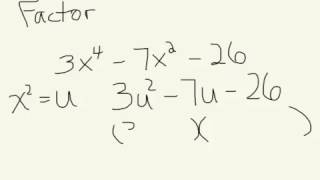 Factor
3x⁴ - 7x² - 26
x² = u 3u² - 7u - 26
( )( )